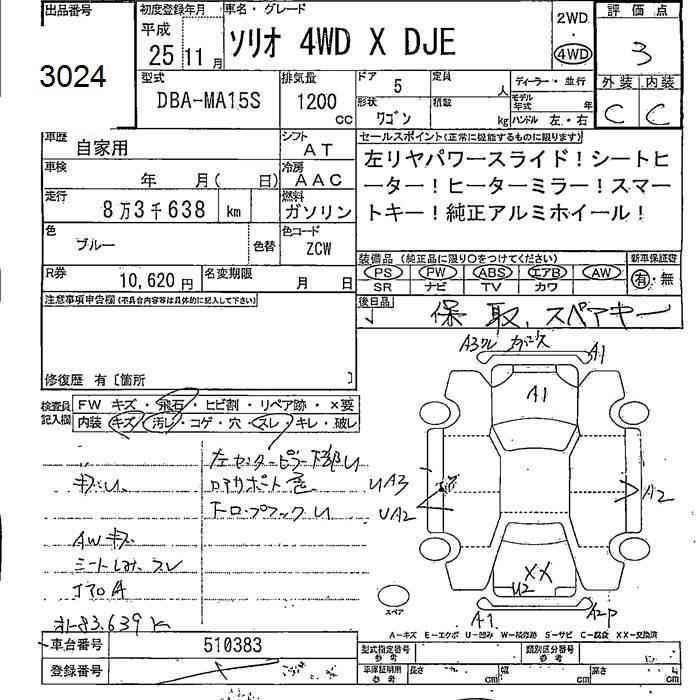 出品番号
3024
初度登録年月
平成
25 11 月
車名・グレード
ソリオ 4WD X DJE
2WD
・
4WD
評価点
3
外装 内装
C C
型式
DBA-MA15S
排気量
1200
cc
ドア 5
定員
人
形状
ワゴン
積載
kg
ディーラー・並行
モデル年式
年
ハンドル 左・右
車歴
自家用
シフト
AT
車検
年 月( 日)
冷房
AAC
走行
8万3千638 km
燃料
ガソリン
色
ブルー
色替
色コード
ZCW
R券
10,620 円
名変期限
月 日
セールスポイント(正常に機能するものに限ります)
左リヤパワースライド!シートヒ
ーター!ヒーターミラー!スマー
トキー!純正アルミホイール!
装備品(純正品に限り○をつけてください)
PS PW ABS エアB AW
SR ナビ TV カワ
新車保証書
有・無
後日品
保 取、スペアキー
注意事項申告欄(不具合内容等は具体的に記入して下さい)
修復歴 有〔箇所 〕
検査員記入欄
FW キズ・飛石・ヒビ割・リペア跡・×要
内装 キズ・汚レ・コゲ・穴・スレ・キレ・破レ
左センターピラー下部U
キズU
AWキズ
シートしみ、スレ
83.639 K
A1
A1
UA3
UA2
A2
XX
U2
A1
A2P
スペア
A−キズ E−エクボ U−凹み W−補修跡 S−サビ C−腐食 XX−交換済
車台番号
510383
登録番号
型式指定番号
参考
類別区分番号
参考
車庫証明用
参考
長さ cm
幅 cm
高さ cm